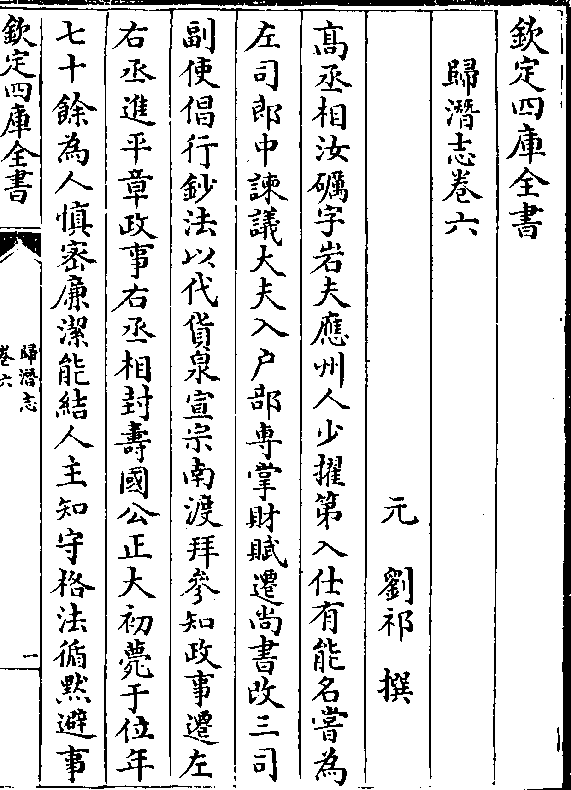 欽定四庫全書
歸潛志卷六
元 劉祁 撰
高丞相汝礪字岩夫應州人少擢第入仕有能名嘗為
左司郎中諫議大夫入户部專掌財賦遷尚書改三司
副使倡行鈔法以代貨泉宣宗南渡拜參知政事遷左
右丞進平章政事右丞相封壽國公正大初薨于位年
七十餘為人慎密廉潔能結人主知守格法循黙避事
欽定四庫全書
歸潛志
卷六
一